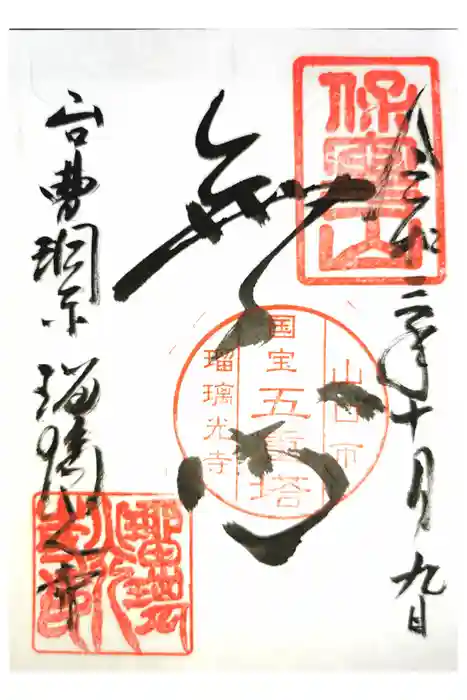 令和二年十月九日
保寧山
無心
山口市
国宝
五重塔
瑠璃光寺
曹洞宗 瑠璃光寺